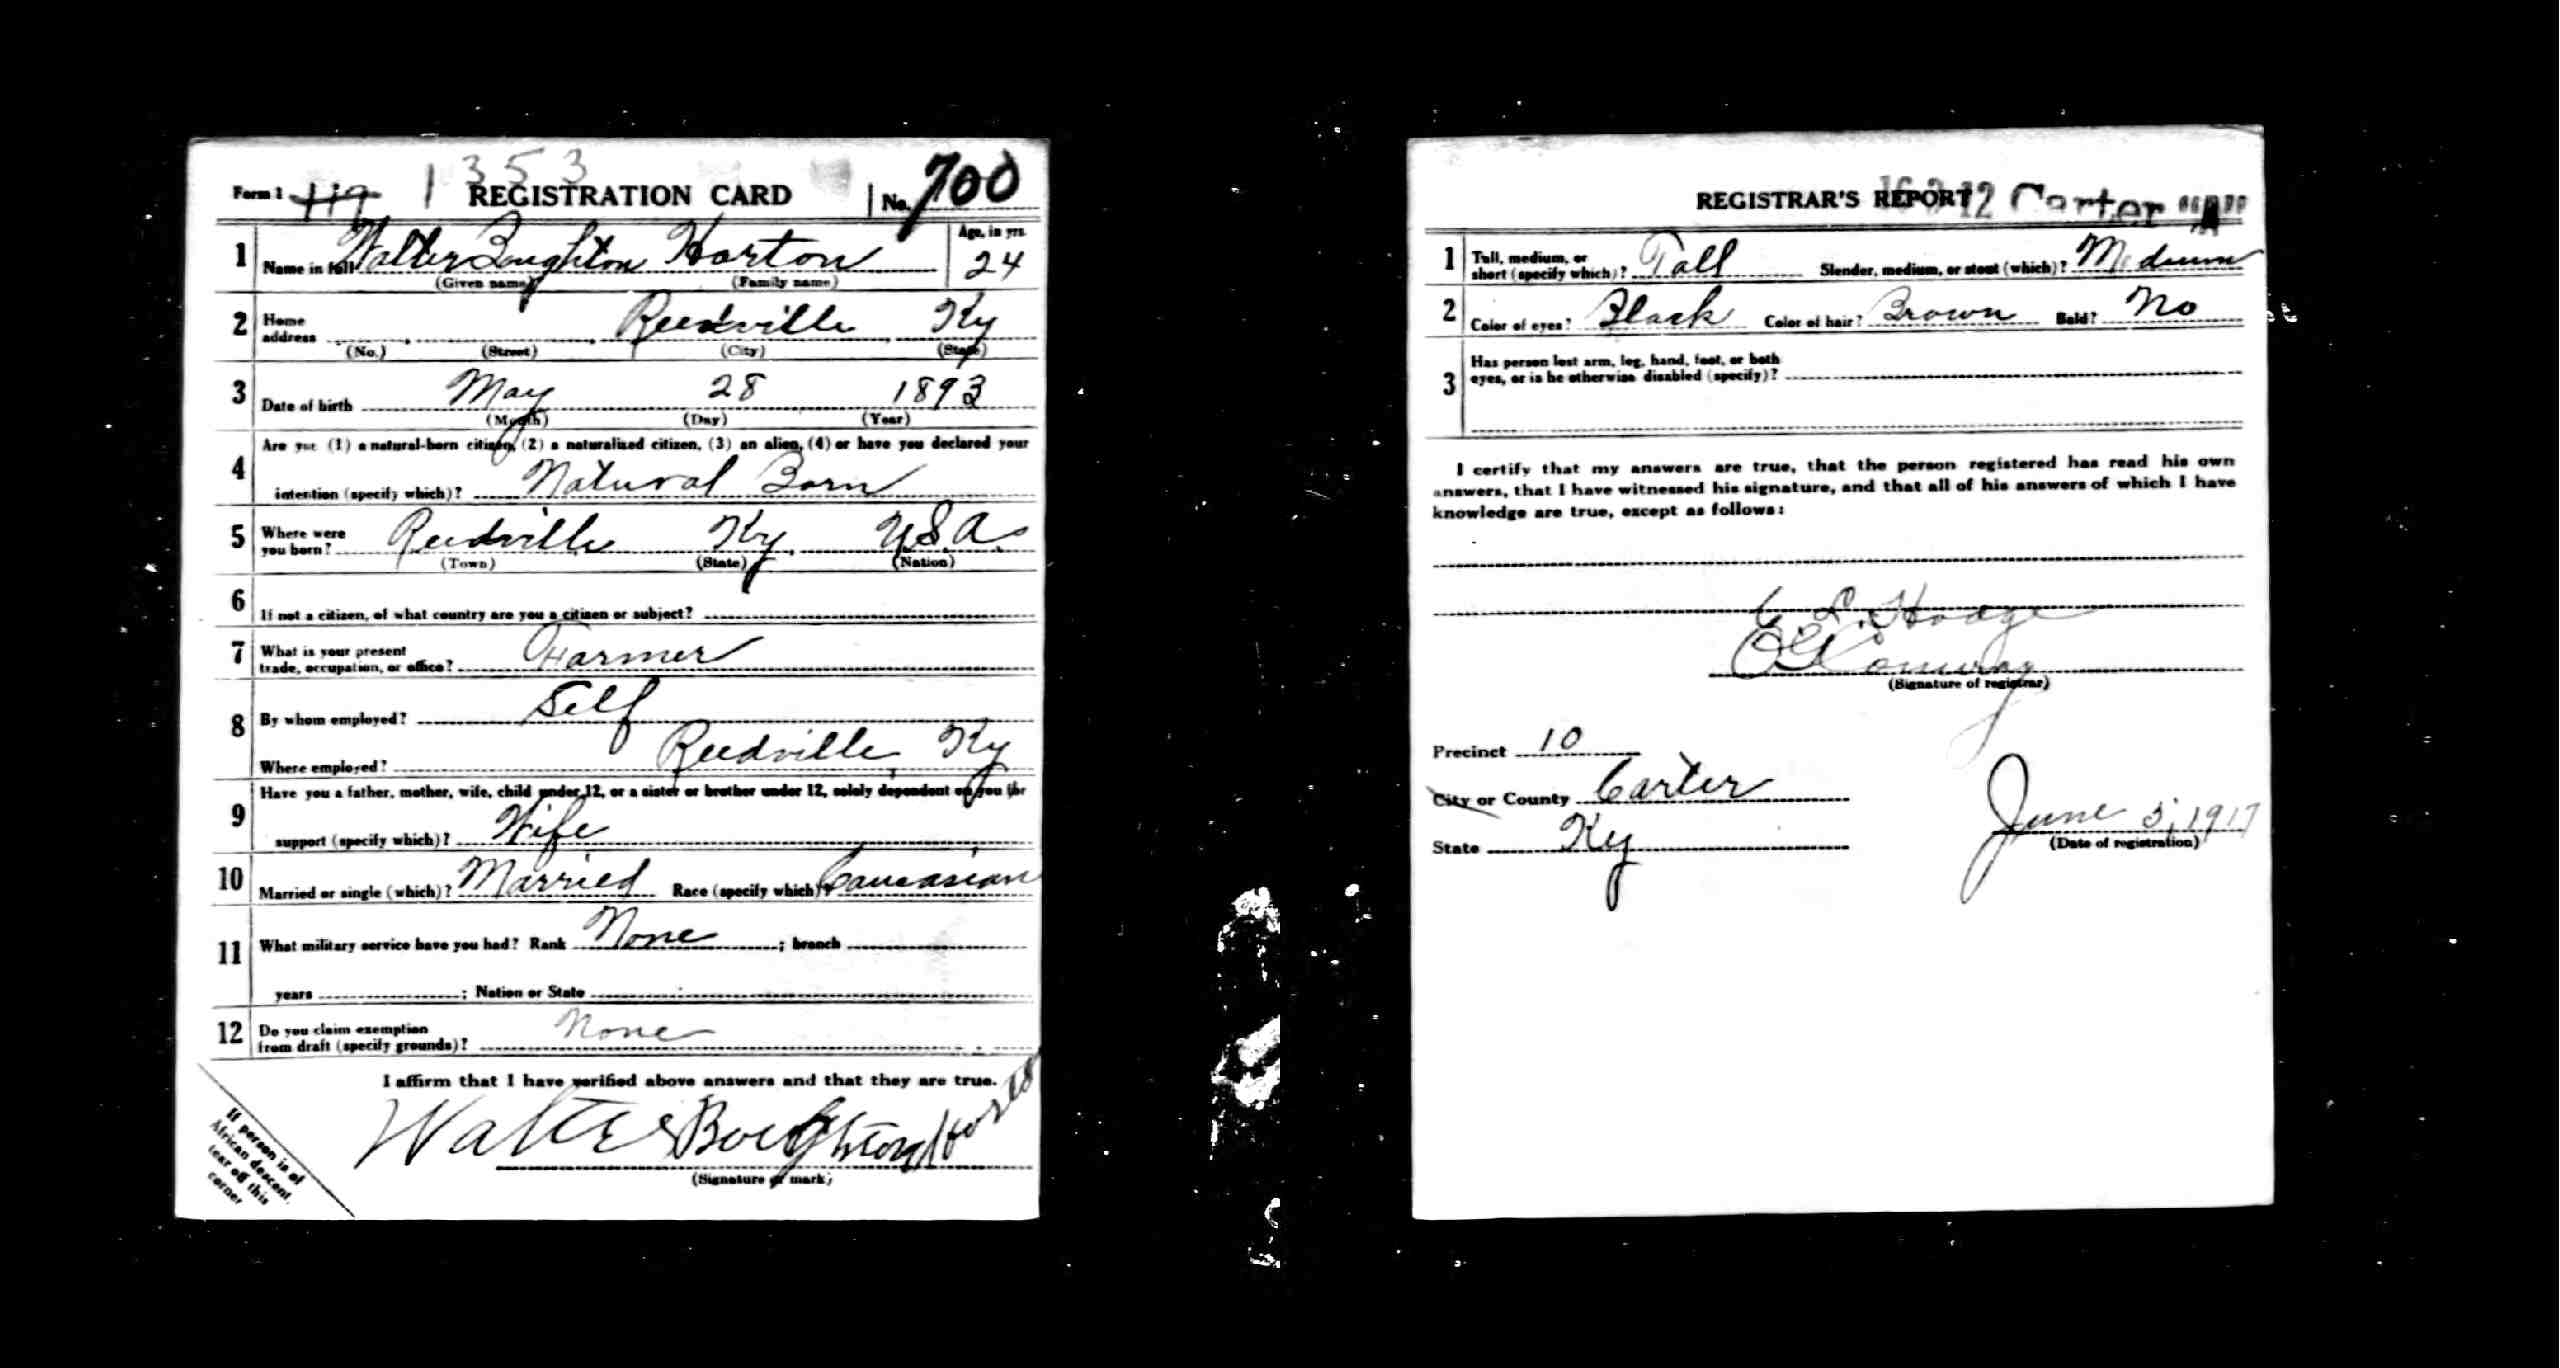 1353
Form 1 REGISTRATION CARD No. 700
1 Name in full Walter Boughton Horton Age, in yrs. 24
(Given name) (Family name)
2 Home address Reedville Ky
(No.) (Street) (City) (State)
3 Date of birth May 28 1893
(Month) (Day) (Year)
4 Are you (1) a natural-born citizen, (2) a naturalized citizen, (3) an alien, (4) or have you declared your
intention (specify which)? Natural Born
5 Where were you born? Reedville Ky. U.S.A.
(Town) (State) (Nation)
6 If not a citizen, of what country are you a citizen or subject?
7 What is your present
trade, occupation, or office? Farmer
8 By whom employed? Self
Where employed? Reedville, Ky
9 Have you a father, mother, wife, child under 12, or a sister or brother under 12, solely dependent on you for
support (specify which)? Wife
10 Married or single (which)? Married Race (specify which)? Caucasian
11 What military service have you had? Rank None ; branch
years ; Nation or State
12 Do you claim exemption
from draft (specify grounds)? None
I affirm that I have verified above answers and that they are true.
Walter Boughton Horton
(Signature or mark)
If person is of
African descent,
tear off this
corner
REGISTRAR'S REPORT Carter "A"
1 Tall, medium, or
short (specify which)? Tall Slender, medium, or stout (which)? Medium
2 Color of eyes? Black Color of hair? Brown Bald? No
3 Has person lost arm, leg, hand, foot, or both
eyes, or is he otherwise disabled (specify)?
I certify that my answers are true, that the person registered has read his own
answers, that I have witnessed his signature, and that all of his answers of which I have
knowledge are true, except as follows:
C. L. Hodge
Conway
(Signature of registrar)
Precinct 10
City or County Carter
State Ky
June 5, 1917
(Date of registration)